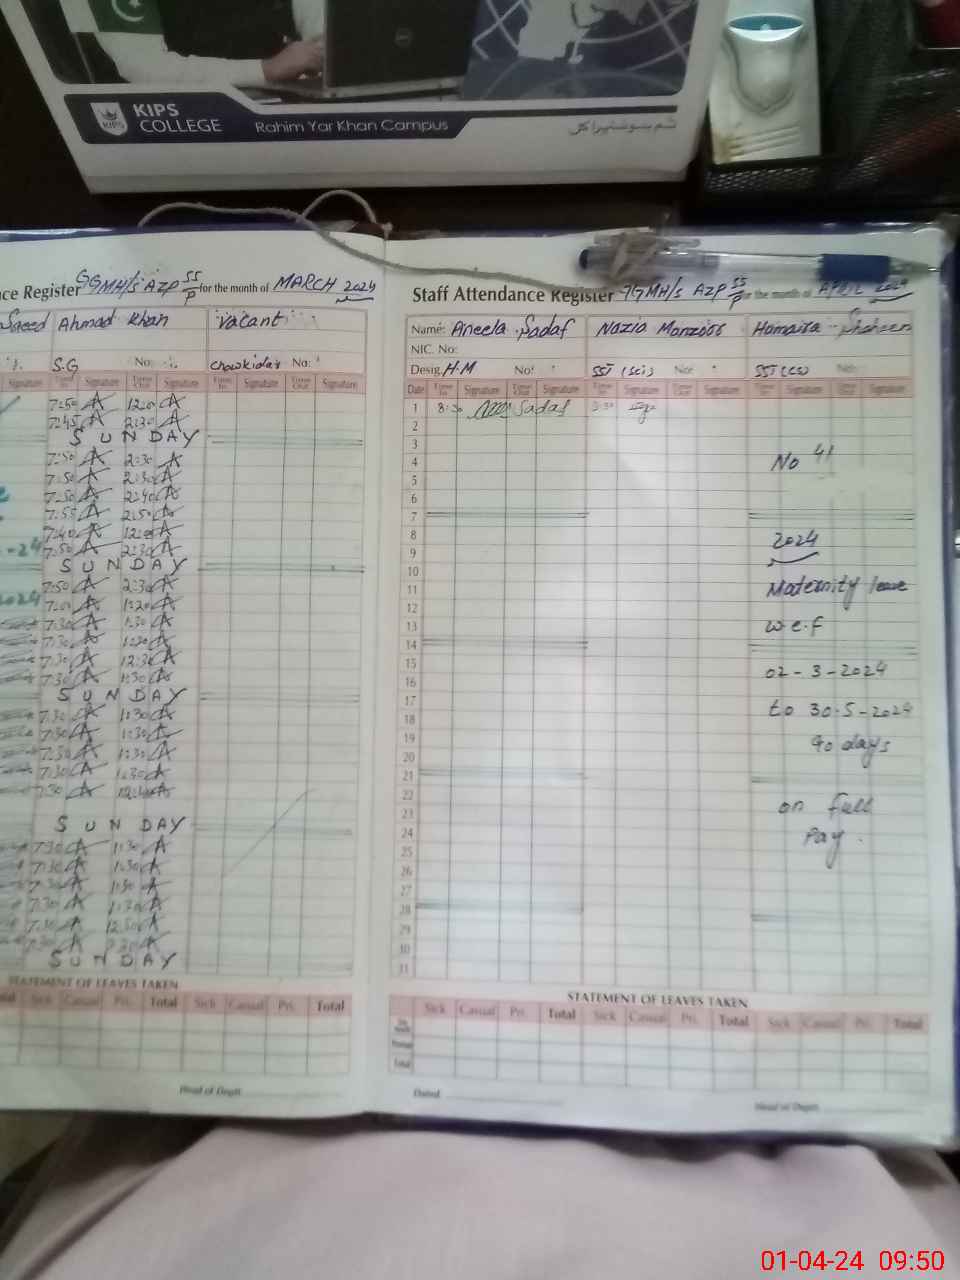 KIPS
COLLEGE
KIPS
Rahim Yar Khan Campus
DELL
nce Register GGMH/s AZP SS/P for the month of MARCH 2024
Saeed Ahmad Khan Vacant
S.G No: Chowkidar No:
Signature Time In Signature Time Out Signature Time In Signature Time Out Signature
7:50 A 12:00 A
7:45 A 2:30 A
SUNDAY
7:50 A 2:30 A
7:50 A 2:30 A
7:50 A 2:40 A
7:55 A 2:50 A
7:40 A 12:00 A
-24 7:50 A 2:30 A
SUNDAY
7:50 A 2:30 A
2024 A 1:20 A
7:30 A 1:30 A
7:30 A 1:20 A
7:30 A 12:30 A
7:30 A 1:30 A
SUNDAY
7:30 A 1:30 A
7:30 A 1:30 A
7:30 A 1:30 A
7:30 A 1:30 A
7:30 A 12:00 A
SUNDAY
7:30 A 1:30 A
7:30 A 1:30 A
7:30 A 1:30 A
7:30 A 1:30 A
7:30 A 12:50 A
7:30 A A
SUNDAY
STATEMENT OF LEAVES TAKEN
Sick Casual Pri. Total Sick Casual Pri. Total
Head of Deptt.
Staff Attendance Register GGMH/s AZP SS/P for the month of APRIL 2024
Name: Aneela Sadaf Nazia Manzoor Homaira Shaheen
NIC. No:
Desig. H.M No: SST (Sci) No: SST (CS) No:
Date Time In Signature Time Out Signature Time In Signature Time Out Signature Time In Signature Time Out Signature
1 8:30 Sadaf
2
3
4 No 41
5
6
7
8 2024
9
10
11 Maternity leave
12
13 w.e.f
14
15 02-3-2024
16
17 to 30-5-2024
18
19 90 days
20
21
22 on full
23
24 Pay.
25
26
27
28
29
30
31
STATEMENT OF LEAVES TAKEN
Sick Casual Pri. Total Sick Casual Pri. Total Sick Casual Pri. Total
Total
Dated
Head of Deptt.
01-04-24 09:50